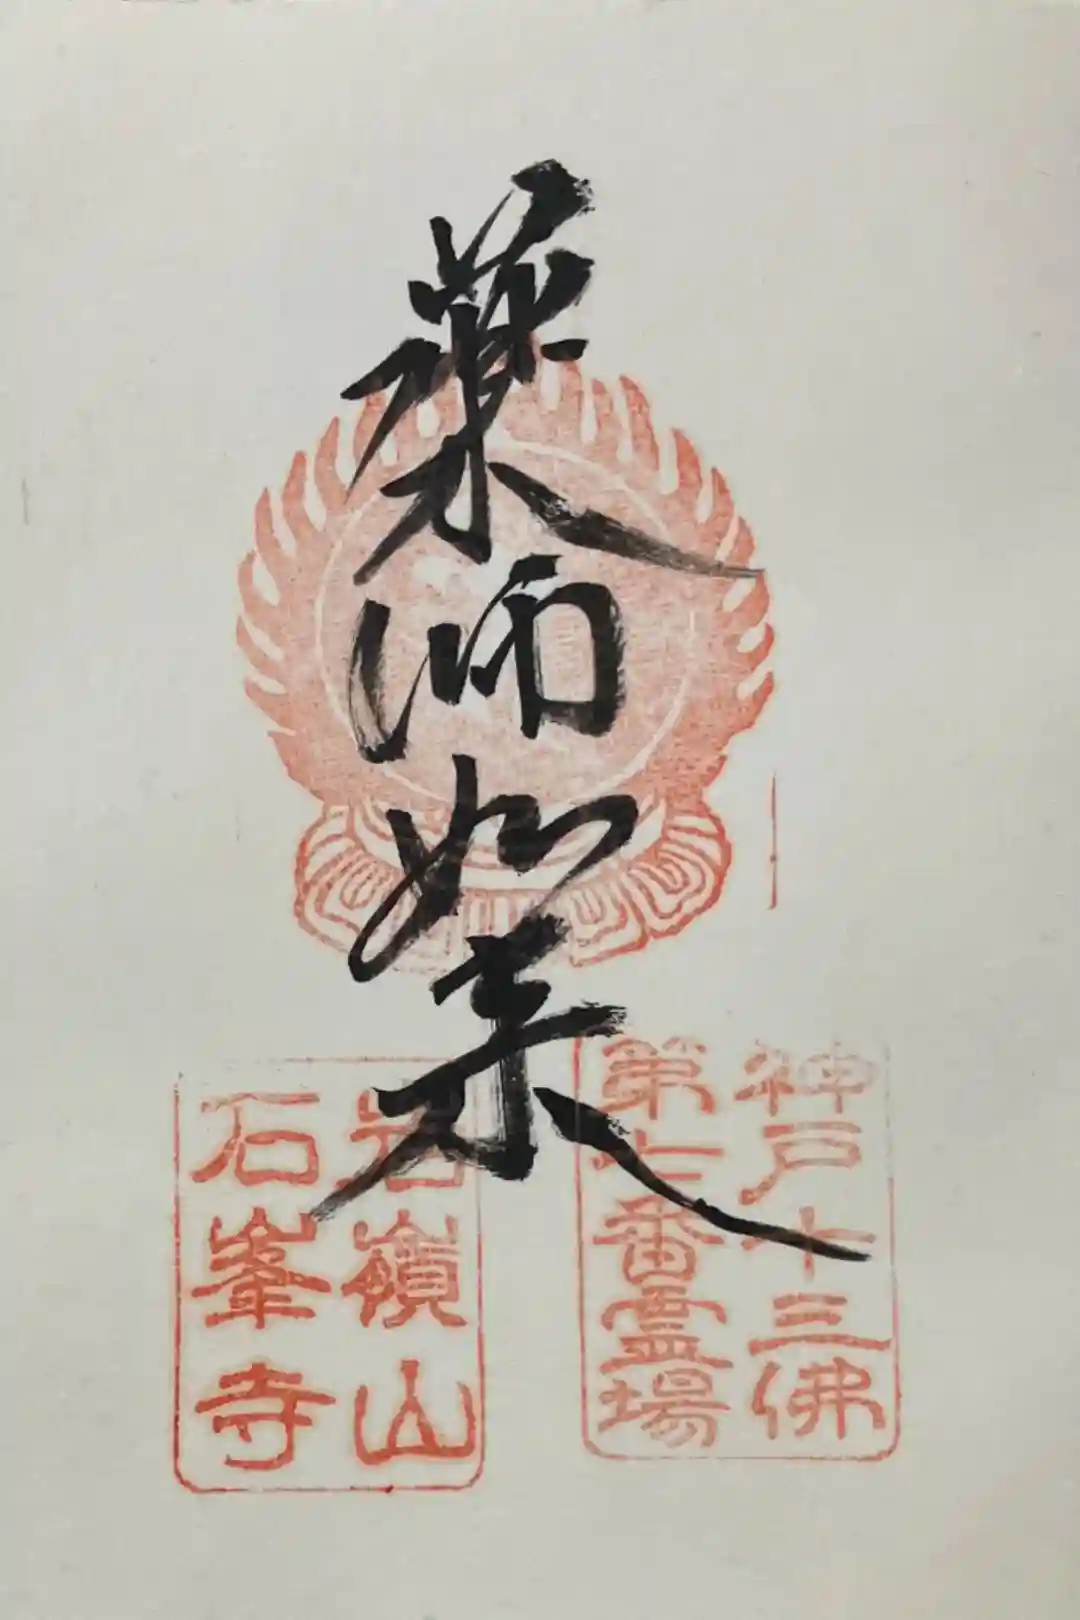 薬師如来
神戸十三佛
第七番霊場
岩嶺山
石峯寺